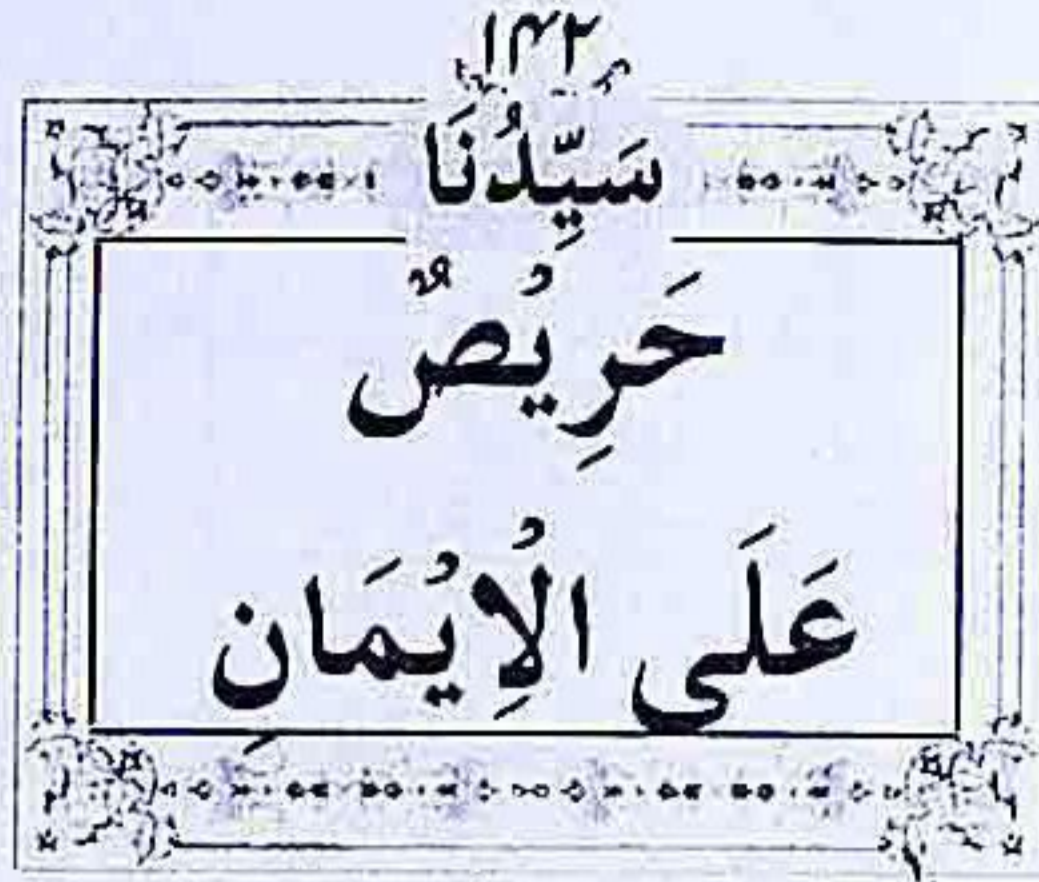 ۱۴۲
سَيِّدُنَا
حَرِيْصٌ
عَلَى الْاِيْمَانِ